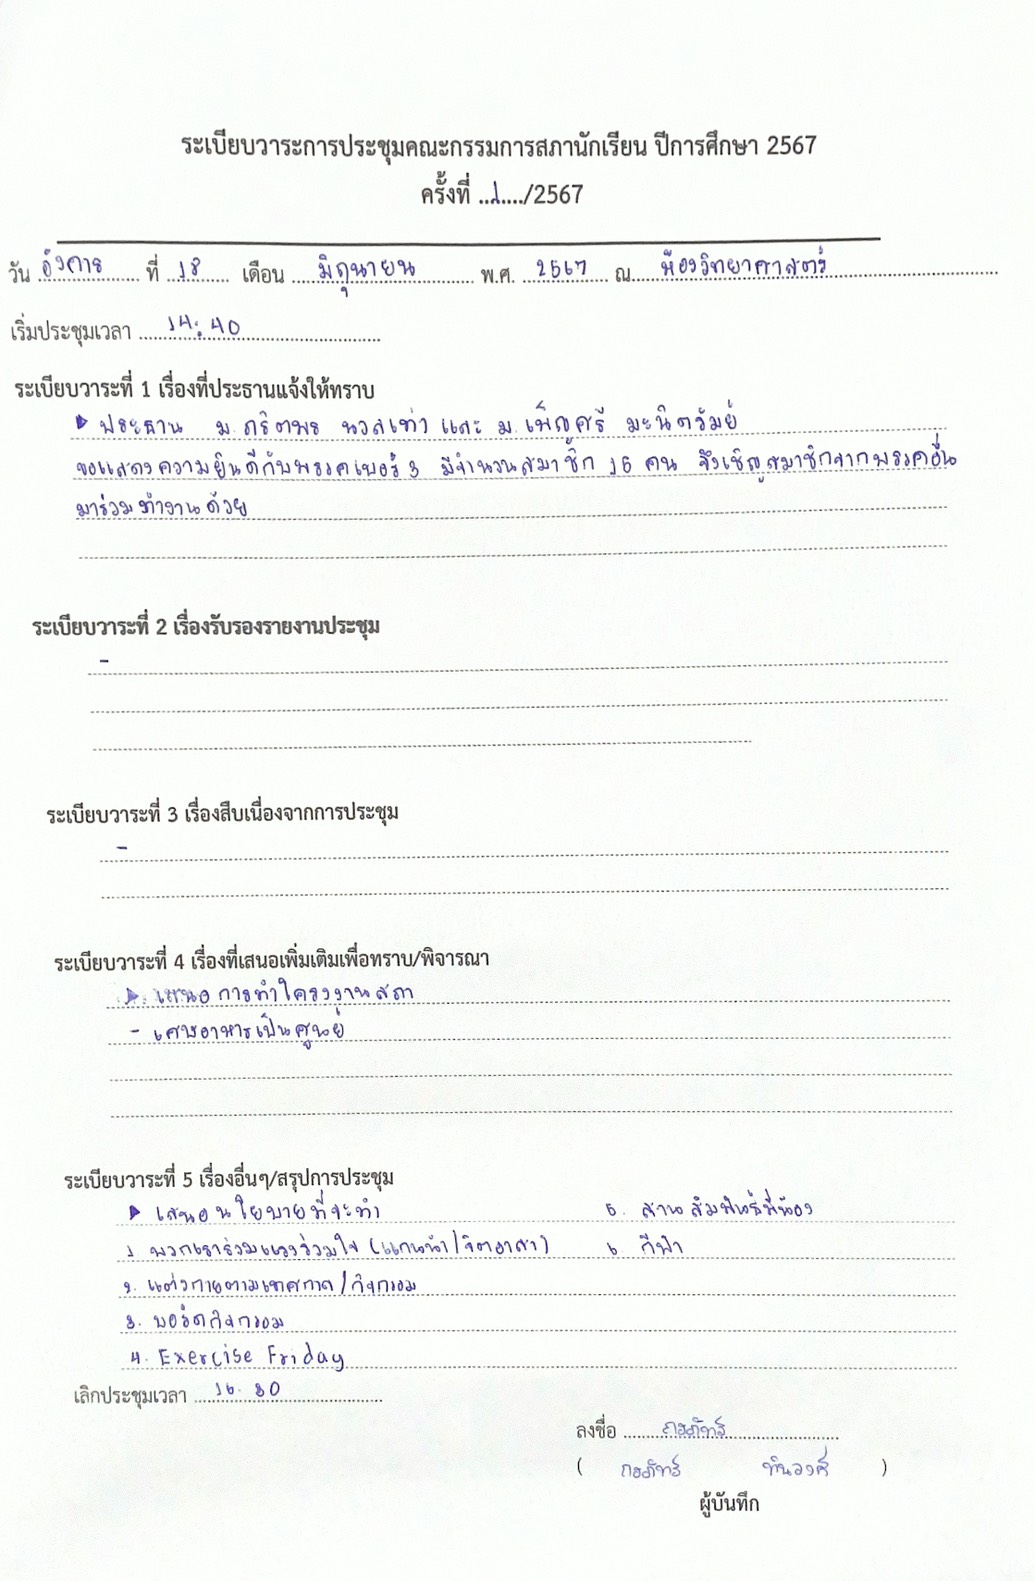 ระเบียบวาระการประชุมคณะกรรมการสภานักเรียน ปีการศึกษา 2567
ครั้งที่ ..1..../2567
วัน อังคาร ที่ 18 เดือน มิถุนายน พ.ศ. 2567 ณ ห้องวิทยาศาสตร์
เริ่มประชุมเวลา 14:40
ระเบียบวาระที่ 1 เรื่องที่ประธานแจ้งให้ทราบ
ประธาน ม. นวลเท่า และ ม.เพ็ญศรี
ขอแสดงความยินดีกับพรรคเบอร์ 3 มีจำนวนสมาชิก คน จึงเชิญสมาชิกจากพรรคอื่น
มาร่วมทำงานด้วย
ระเบียบวาระที่ 2 เรื่องรับรองรายงานประชุม
-
ระเบียบวาระที่ 3 เรื่องสืบเนื่องจากการประชุม
-
ระเบียบวาระที่ 4 เรื่องที่เสนอเพิ่มเติมเพื่อทราบ/พิจารณา
เสนอการทำโครงงานสภา
- เศษอาหารเป็นศูนย์
ระเบียบวาระที่ 5 เรื่องอื่นๆ/สรุปการประชุม
เสนอนโยบายที่จะทำ 5. สานสัมพันธ์พี่น้อง
1. พวกเราร่วมแรงร่วมใจ (แกนนำ/จิตอาสา) 6. กีฬา
2. แต่งกายตามเทศกาล/กิจกรรม
3. บอร์ดกิจกรรม
4. Exercise Friday
เลิกประชุมเวลา 16.30
ลงชื่อ
( )
ผู้บันทึก